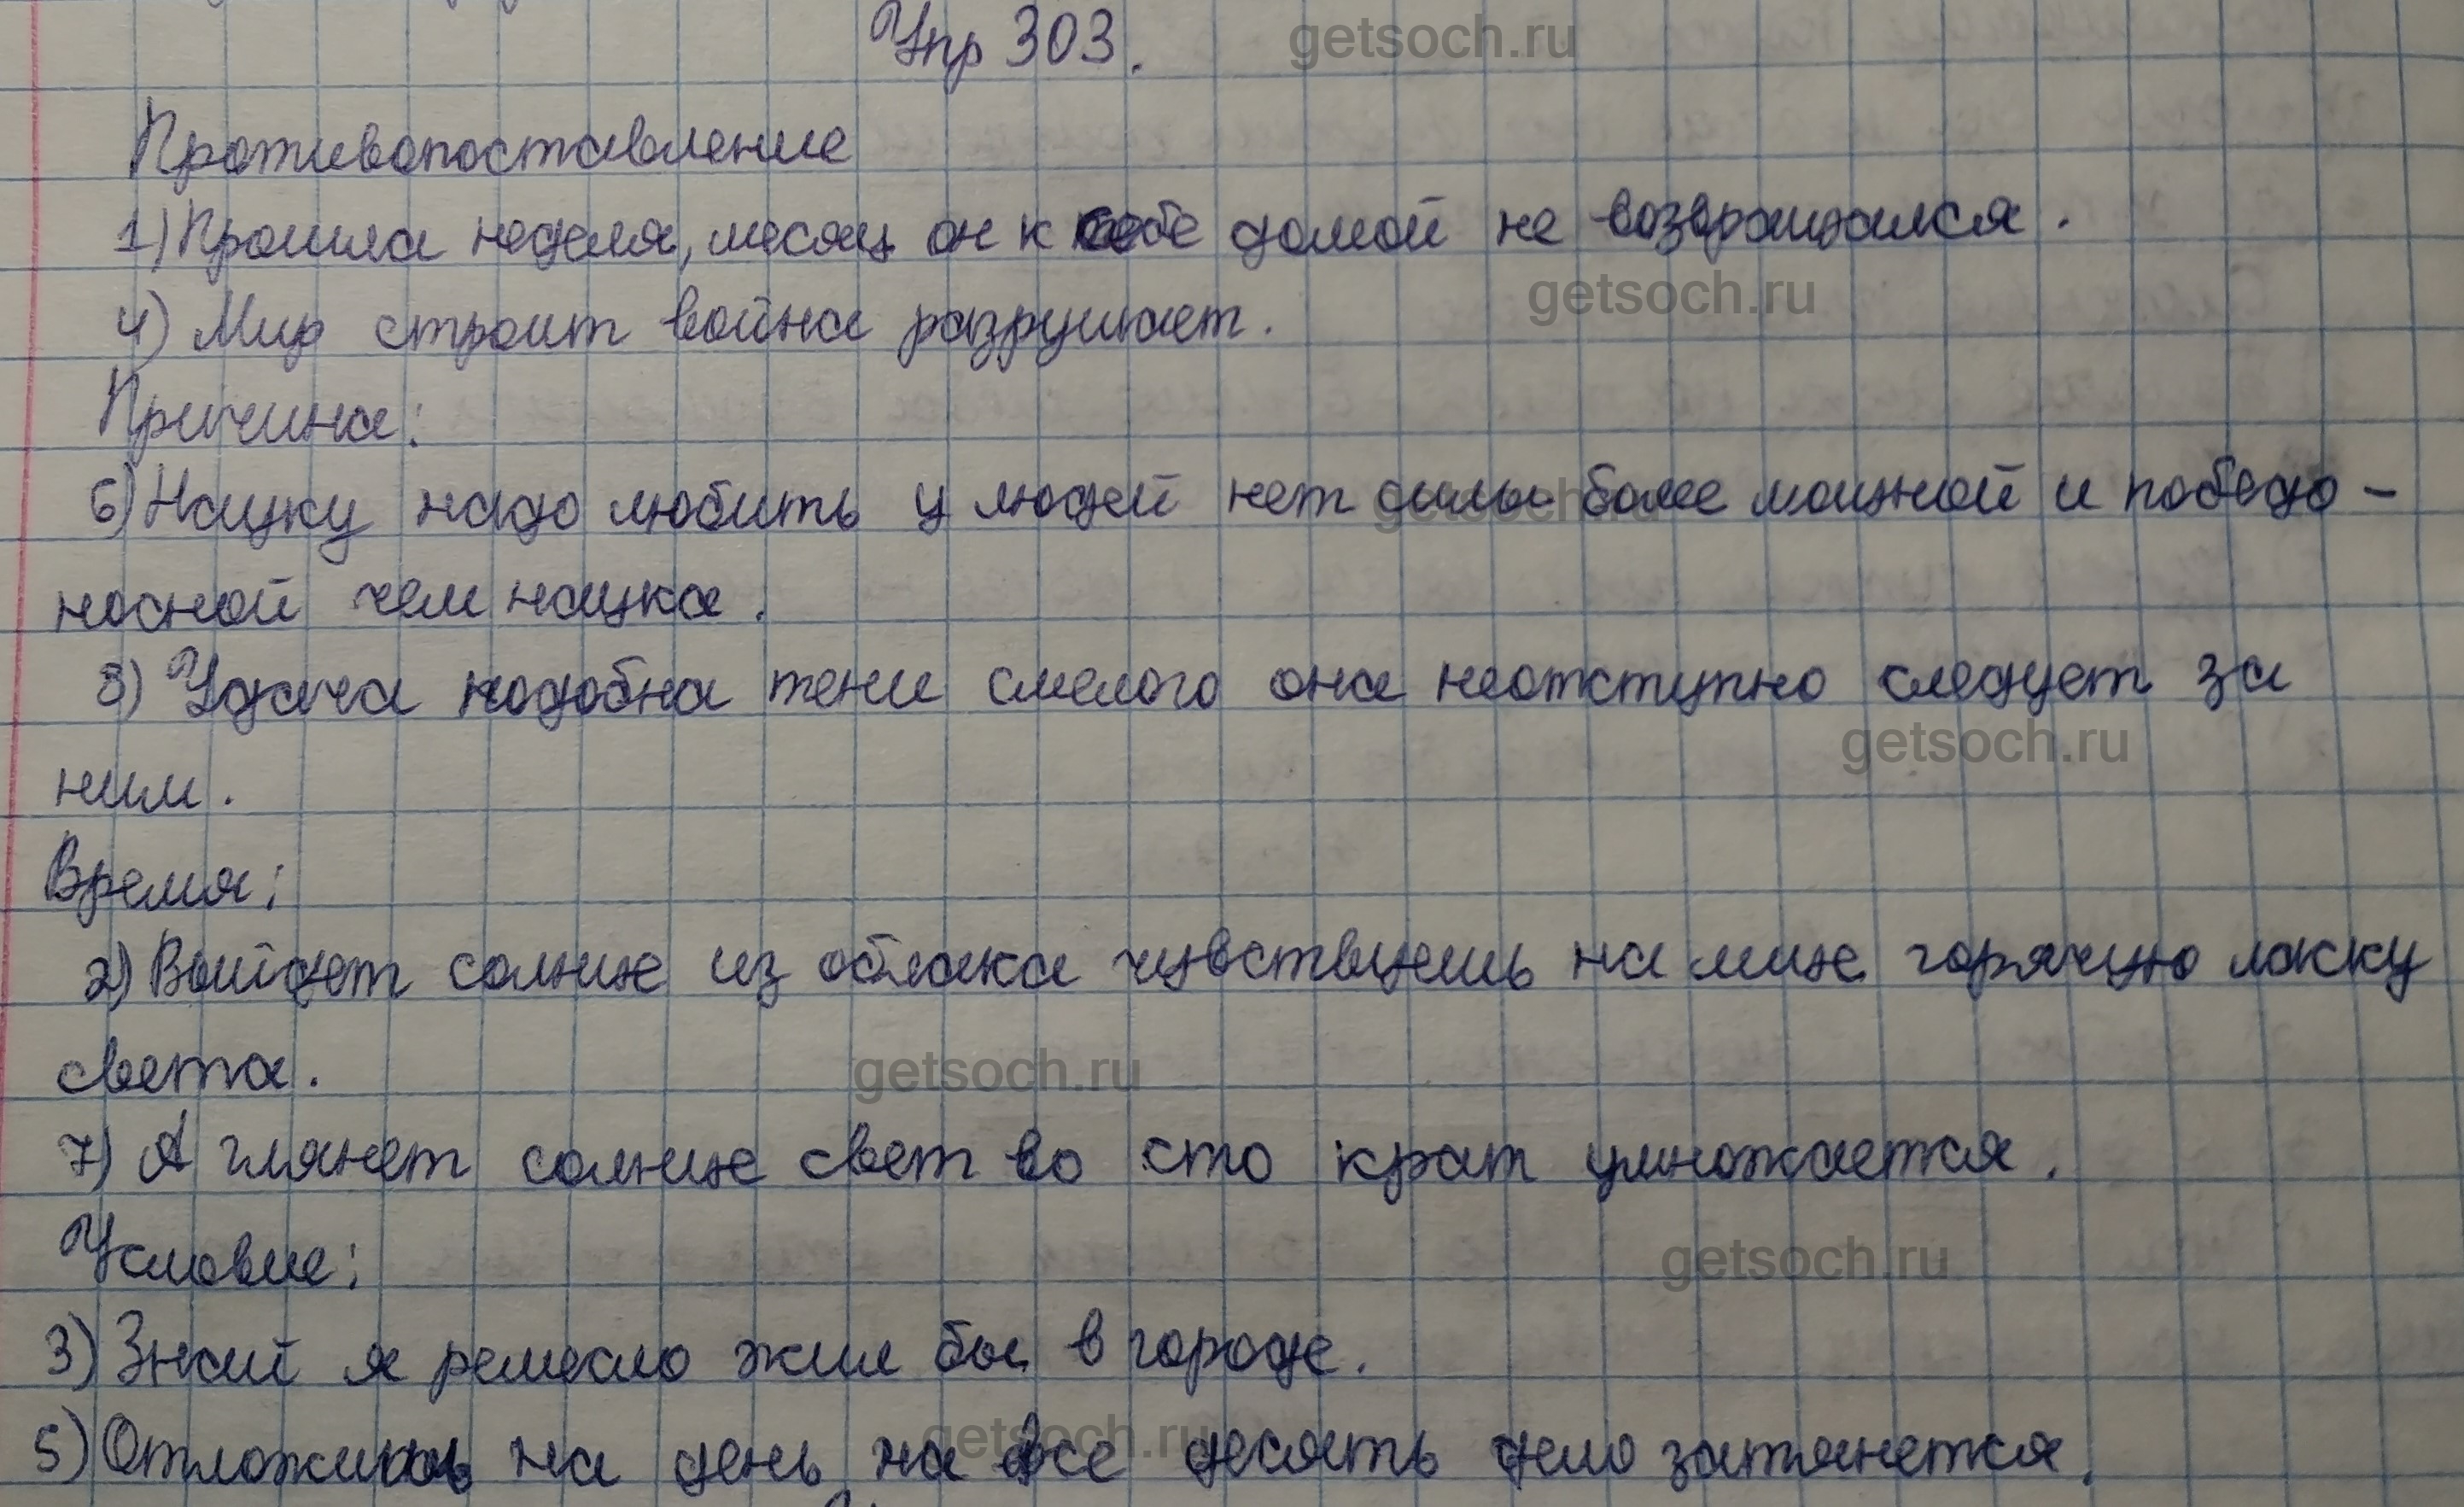 Упр 303.
getsoch.ru
Противопоставление
1) Прошла неделя, месяц он к себе домой не возвращался.
getsoch.ru
4) Мир строит война разрушает.
Причина:
6) Науку надо любить у людей нет силы более мощной и победо-
getsoch.ru
носной чем наука.
8) Удача подобна тени смелого она неотступно следует за
getsoch.ru
ним.
Время:
2) Выйдет солнце из облака чувствуешь на лице горячую ласку
света.
getsoch.ru
7) А глянет солнце свет во сто крат умножается.
Условие:
getsoch.ru
3) Знай я ремесло жил бы в городе.
getsoch.ru
5) Отложишь на день на все десять дело затянется.